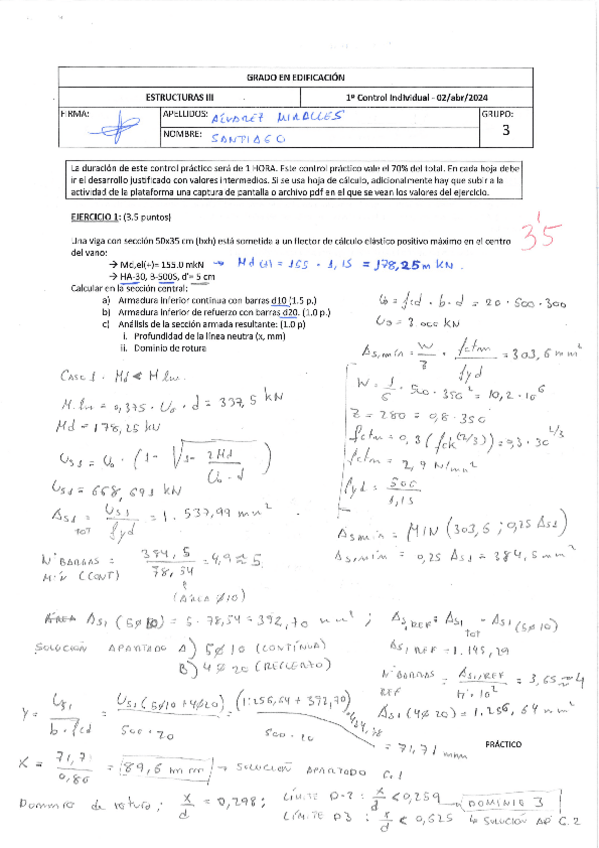 GRADO EN EDIFICACIÓN
ESTRUCTURAS III
1º Control Individual - 02/abr/2024
FIRMA:
APELLIDOS: ALVAREZ MIRALLES
GRUPO:
3
NOMBRE: SANTIAGO
La duración de este control práctico será de 1 HORA. Este control práctico vale el 70% del total. En cada hoja debe
ir el desarrollo justificado con valores intermedios. Si se usa hoja de cálculo, adicionalmente hay que subir a la
actividad de la plataforma una captura de pantalla o archivo pdf en el que se vean los valores del ejercicio.
EJERCICIO 1: (3.5 puntos)
3'5
Una viga con sección 50x35 cm (bxh) está sometida a un flector de cálculo elástico positivo máximo en el centro
del vano:
→ Md,el(+)= 155.0 mkN → Md(+) = 155 · 1,15 = 178,25 m kN.
→ HA-30, B-500S, d'= 5 cm
Calcular en la sección central:
a) Armadura inferior continua con barras d10 (1.5 p.)
b) Armadura inferior de refuerzo con barras d20. (1.0 p.)
c) Análisis de la sección armada resultante: (1.0 p)
i. Profundidad de la línea neutra (x, mm)
ii. Dominio de rotura
U0 = fcd · b · d = 20 · 500 · 300
U0 = 3.000 kN
As,min = W/z · fctm/fyd = 303,6 mm²
W = 1/6 · 500 · 350² = 10,2 · 10⁶
Z = 280 = 0,8 · 350
fctm = 0,3 (fck^(2/3)) = 0,3 · 30^2/3
fctm = 2,9 N/mm²
fyd = 500/1,15
As min = MIN (303,6 ; 0,25 As1)
As,min = 0,25 As1 = 384,5 mm²
CASO 1 · Md < Mlim.
Mlim = 0,375 · U0 · d = 337,5 kN
Md = 178,25 kN
Us1 = U0 · (1 - √(1 - 2Md/(U0 · d)))
Us1 = 668,691 kN
As1 TOT = Us1/fyd = 1.537,99 mm²
Nº BARRAS MIN (CONT) = 384,5/78,54 = 4,9 ≈ 5
(AREA Ø10)
AREA As1 (5Ø10) = 5 · 78,54 = 392,70 mm² ; As,REF = As1 TOT - As1 (5Ø10)
SOLUCIÓN APARTADO A) 5Ø10 (CONTINUA)
As1 REF = 1.145,29
B) 4Ø20 (REFUERZO)
Nº BARRAS REF = As1,REF/π · 10² = 3,65 ≈ 4
As1 (4Ø20) = 1.256,64 mm²
Y = Us1/b · fcd = Us1 (5Ø10 + 4Ø20)/500 · 20 = (1.256,64 + 392,70) · 434,78/500 · 20 = 71,71 mm
PRÁCTICO
X = 71,71/0,80 = 89,6 mm → SOLUCIÓN APARTADO C.1
DOMINIO de rotura; x/d = 0,298; LÍMITE D-2: x/d < 0,259 DOMINIO 3
LÍMITE D3 : x/d < 0,625 ↳ SOLUCIÓN AP C.2